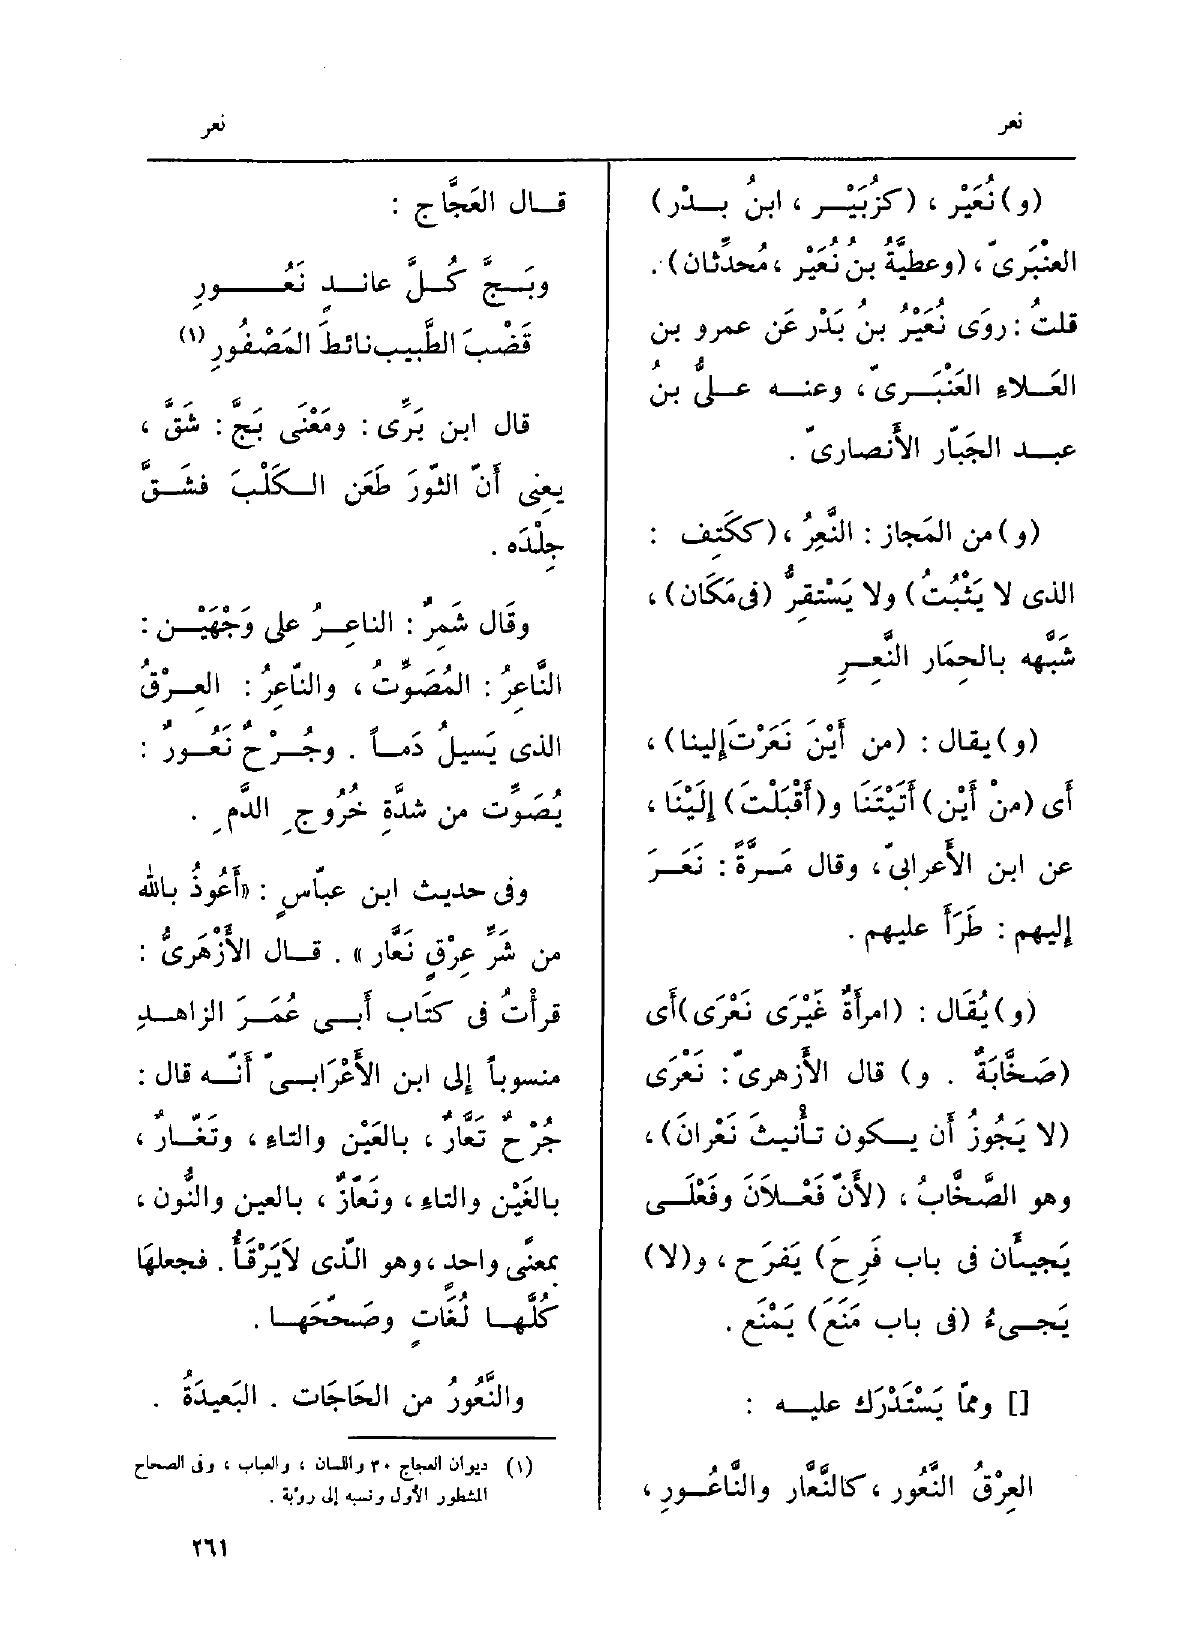 نعر
نعر
(و) نُعَيْر ، (كزُبَيْـر ، ابنُ بـدْر)
العنْبَرىّ ، (وعطيَّةُ بنُ نُعَيْر ، مُحدِّثان) .
قلتُ : روَى نُعَيْرُ بنُ بَدْر عَن عمرو بن
العَـلاءِ العَنْبَـرىّ ، وعنـه علىُّ بنُ
عبـد الجَبّار الأَنصارىّ .
(و) من المَجاز : النَّعِرُ ، (ككَتِف :
الذى لا يَثْبُتُ) ولا يَسْتقِرُّ (فى مَكَان) ،
شَبَّهه بالحِمَار النَّعِـرِ
(و) يقال : (من أَيْنَ نَعَرْتَ إِلينا) ،
أَى (منْ أَيْن) أَتَيْتَنَا و(أَقْبَلْتَ) إِلَيْنَا ،
عن ابن الأَعرابىّ ، وقال مَـرَّةً : نَعَـرَ
إِليهم : طَرَأَ عليهم .
(و) يُقَال : (امرأَةٌ غَيْرَى نَعْرَى) أَى
(صَخَّابَةٌ . و) قال الأَزهرىّ : نَعْرَى
(لا يَجُوزُ أَن يـكون تأْنيثَ نَعْرانَ) ،
وهو الصَّخّابُ ، (لأَنّ فَعْـلاَنَ وفَعْلَـى
يَجيئَان فى باب فَرِحَ) يَفرَح ، و(لا)
يَجـىءُ (فى باب مَنَعَ) يَمْنَع .
[] وممّا يَسْتَدْرَك عليـه :
العِرْقُ النَّعُور ، كالنَّعَّار والنّاعُـورِ ،
قـال العَجَّاج :
وبَـجَّ كُـلَّ عانـدٍ نَعُـورِ
قَضْبَ الطَّبِيبِ نائطَ المَصْفُورِ (١)
قال ابن بَرِّى : ومَعْنَى بَجَّ : شَقَّ ،
يعنِى أَنّ الثّورَ طَعَن الـكَلْبَ فشَـقَّ
جِلْدَه .
وقَال شَمِرٌ : الناعِـرُ على وَجْهَيْـن :
النَّاعِرُ : المُصَوِّتُ ، والنّاعِرُ : العِـرْقُ
الذى يَسيلُ دَمـاً . وجُـرْحٌ نَعُـورٌ :
يُصَوِّت من شدَّةِ خُرُوجِ الدَّمِ .
وفى حديث ابن عبّاسٍ : «أَعُوذُ بالله
من شَرِّ عِرْقٍ نَعَّار» . قـال الأَزْهَرِىُّ :
قرأْتُ فى كتَاب أَبـى عُمَـرَ الزاهـدِ
منسوباً إِلى ابن الأَعْرَابـىّ أَنّـه قال :
جُرْحٌ تَعّارٌ ، بالعَيْن والتاءِ ، وتَغّـارٌ ،
بالغَيْن والتاءِ ، ونَعّارٌ ، بالعين والنُّون ،
بمعنًى واحدٍ ، وهو الَّذى لايَرْقَأُ . فجعلهَا
كُلَّهـا لُغَاتٍ وصَحّحَهـا .
والنَّعُورُ من الحَاجَات . البَعيدَةُ .
(١) ديوان العجاج ٣٠ واللسان ، والعباب ، وفى الصحاح
المشطور الأول ونسبه إلى رؤبة .
٢٦١